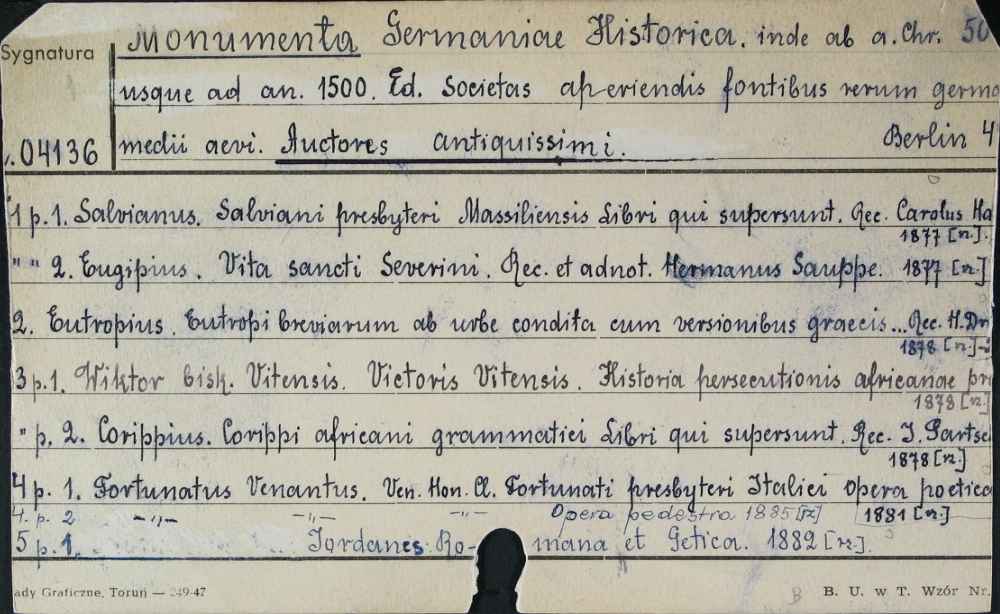 Monumenta Germaniae Historica. inde ab a. Chr. 50
Sygnatura
usque ad an. 1500. Ed. Societas aperiendis fontibus rerum germa
.04136 medii aevi. Auctores antiquissimi. Berlin 4
1 p. 1. Salvianus. Salviani presbyteri Massiliensis Libri qui supersunt. Rec. Carolus Ha
1877 [n.].
" " 2. Eugipius. Vita sancti Severini. Rec. et adnot. Hermanus Sauppe. 1877 [n.]
2. Eutropius. Eutropi breviarum ab urbe condita cum versionibus graecis... Rec. H. Dr
1878 [n.]
3 p. 1. Wiktor bisk. Vitensis. Victoris Vitensis. Historia persecutionis africanae pr
1878 [n.]
" p. 2. Corippius. Corippi africani grammatici Libri qui supersunt. Rec. J. Partsc
1878 [n.]
4 p. 1. Fortunatus Venantus. Ven. Hon. Cl. Fortunati presbyteri Italici Opera poetica
4. p. 2 —„— —„— —„— Opera pedestra 1885 [n] 1881 [n.]
5 p. 1. Jordanes Ro- mana et Getica. 1882 [n.].
ady Graficzne, Toruń — 249-47 B B. U. w T. Wzór Nr.